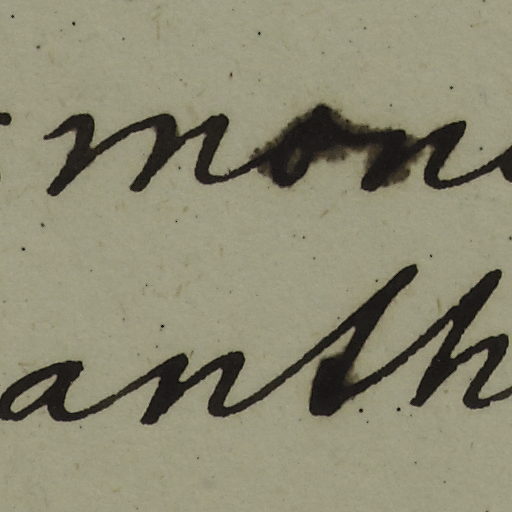 mon
anth